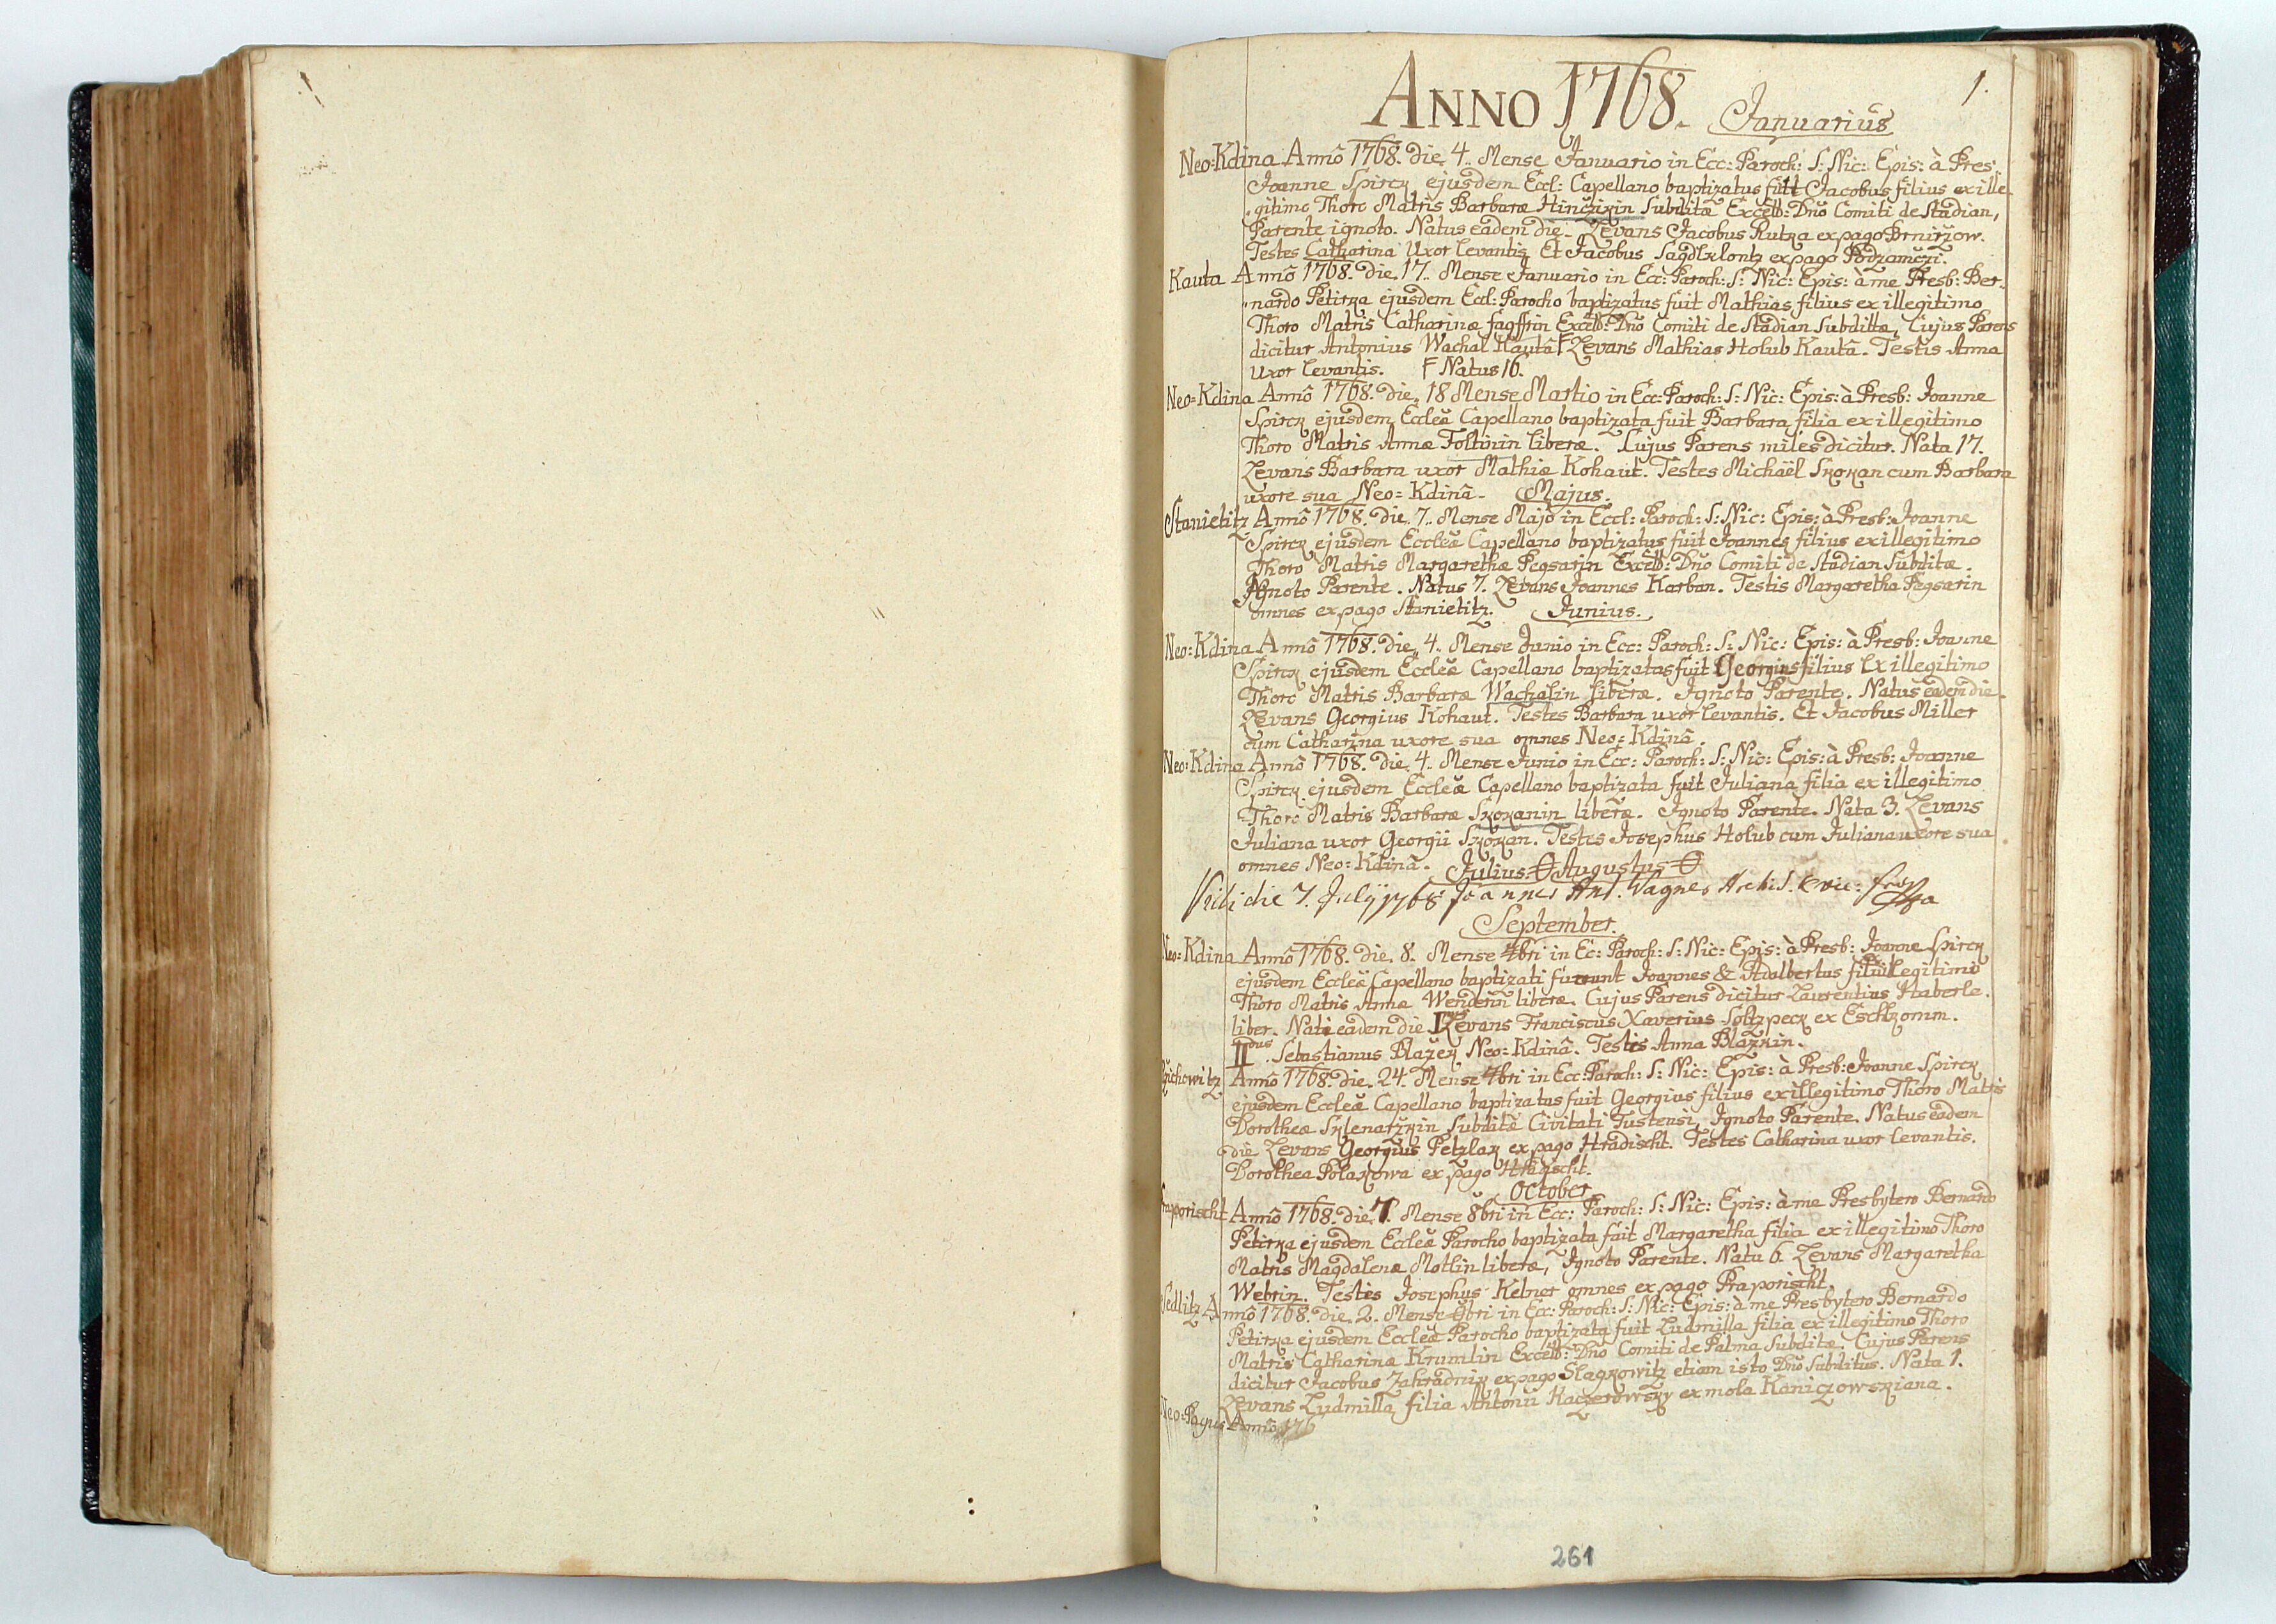 1.
ANNO 1768. Januarius
Neo=Kdina Annô 1768. die. 4. Mense Januario in Ecc: Paroch: S: Nic: Epis: à Pres:
Joanne Spirck ejusdem Eccl: Capellano baptizatus fuit Jacobus filius ex ille
gitimo Thoro Matris Barbaræ Hinczikin Subditæ Excell: Dño Comiti de Stadian,
Parente ignoto. Natus eadem die. Levans Jacobus Kutka ex pago Brnirzow.
Testes Catharina Uxor levantis Et Jacobus ex pago Podzamczi.
Kauta Annô 1768. die. 17. Mense Januario in Ecc: Paroch: S: Nic: Epis: à me Presb: Ber-
nardo Petirka ejusdem Eccl: Parocho baptizatus fuit Mathias filius ex illegitimo
Thoro Matris Catharinæ Excell: Dño Comiti de Stadian Subdittæ, Cujus Parens
dicitur Antonius Wachal Kautâ F Levans Mathias Holub Kautâ. Testis Anna
Uxor levantis. F Natus 16.
Neo=Kdina Annô 1768. die. 18 Mense Martio in Ecc: Paroch: S: Nic: Epis: à Presb: Joanne
Spirck ejusdem Eccleæ Capellano baptizata fuit Barbara filia ex illegitimo
Thoro Matris Annæ Foltinin liberæ. Cujus Parens miles dicitur. Nata 17.
Levans Barbara uxor Mathiæ Kohaut. Testes Michaël Skokan cum Barbara
uxore sua Neo=Kdinâ. Majus.
Stanietitz Annô 1768. die. 7. Mense Majo in Eccl: Paroch: S: Nic: Epis: à Presb: Joanne
Spirck ejusdem Eccleæ Capellano baptizatus fuit Joannes filius ex illegitimo
Thoro Matris Margarethæ Pegsarin Excell: Dño Comiti de Stadian Subditæ.
Ignoto Parente. Natus 7. Levans Joannes Karban. Testis Margaretha Pegsarin
omnes ex pago Stanietitz. Junius.
Neo=Kdina Annô 1768. die. 4. Mense Junio in Ecc: Paroch: S: Nic: Epis: à Presb: Joanne
Spirck ejusdem Eccleæ Capellano baptizatus fuit Georgius filius Ex illegitimo
Thoro Matris Barbaræ Wachalin liberæ. Ignoto Parente. Natus eadem die.
Levans Georgius Kohaut. Testes Barbara uxor levantis. Et Jacobus Miller
cum Catharina uxore sua omnes Neo=Kdinâ.
Neo=Kdina Annô 1768. die. 4. Mense Junio in Ecc: Paroch: S: Nic: Epis: à Presb: Joanne
Spirck ejusdem Eccleæ Capellano baptizata fuit Juliana filia ex illegitimo
Thoro Matris Barbaræ Skokanin liberæ. Ignoto Parente. Nata 3. Levans
Juliana uxor Georgii Skokan. Testes Josephus Holub cum Juliana uxore sua
omnes Neo=Kdinâ. Julius=0 Augustus=0
Vidi die 7. July 1768 Joannes Ant. Wagner
September.
Neo=Kdina Annô 1768. die. 8. Mense 7bri in Ec: Paroch: S: Nic: Epis: à Presb: Joanne Spirck
ejusdem Eccleæ Capellano baptizati fuerunt Joannes & Adalbertus filii illegitimo
Thoro Matris Annæ Wenderin liberæ. Cujus Parens dicitur Laurentius Haberle.
liber. Nati eadem die I. Levans Franciscus Xaverius Soltzpeck ex Eschlkomm.
II. Sebastianus Blažek Neo=Kdinâ. Testis Anna Blažkin.
Annô 1768. die. 24. Mense 7bri in Ecc: Paroch: S: Nic: Epis: à Presb: Joanne Spirck
ejusdem Eccleæ Capellano baptizatus fuit Georgius filius ex illegitimo Thoro Matris
Dorotheæ Sklenarzkin Subditæ Civitati Tustensi, Ignoto Parente. Natus eadem
die Levans Georgius Petzlak ex pago Hradischt. Testes Catharina uxor levantis.
Dorothea Polakowa ex pago Hradischt.
October
Praporischt Annô 1768. die 7. Mense 8bri in Ecc: Paroch: S: Nic: Epis: à me Presbytero Bernardo
Petirka ejusdem Eccleæ Parocho baptizata fuit Margaretha filia ex illegitimo Thoro
Matris Magdalenæ Motlin liberæ, Ignoto Parente. Natu 6. Levans Margaretha
Webrin. Testes Josephus Kelner omnes ex pago Praporischt.
Sedlitz Annô 1768. die. 2. Mense in Ecc: Paroch: S: Nic: Epis: à me Presbytero Bernardo
Petirka ejusdem Eccleæ Parocho baptizata fuit Ludmilla filia ex illegitimo Thoro
Matris Catharinæ Krumlin Excell: Dño Comiti de Palma Subditæ. Cujus Parens
dicitur Jacobus Zahradnik ex pago Slagkowitz etiam isto Dño Subditus. Nata 1.
Levans Ludmilla filia Antonii Kaczerowsky ex mola Kaniczowskiana.
Neo=Pagus Annô 176
261